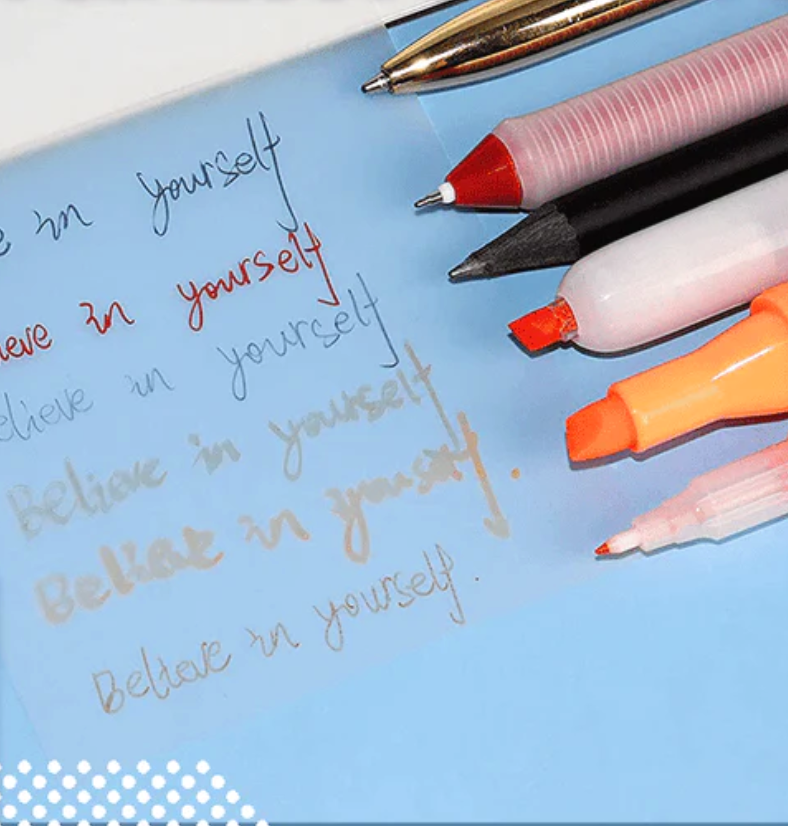 e in yourself
ieve in yourself
elieve in yourself
Believe in yourself
Believe in yourself.
Believe in yourself.